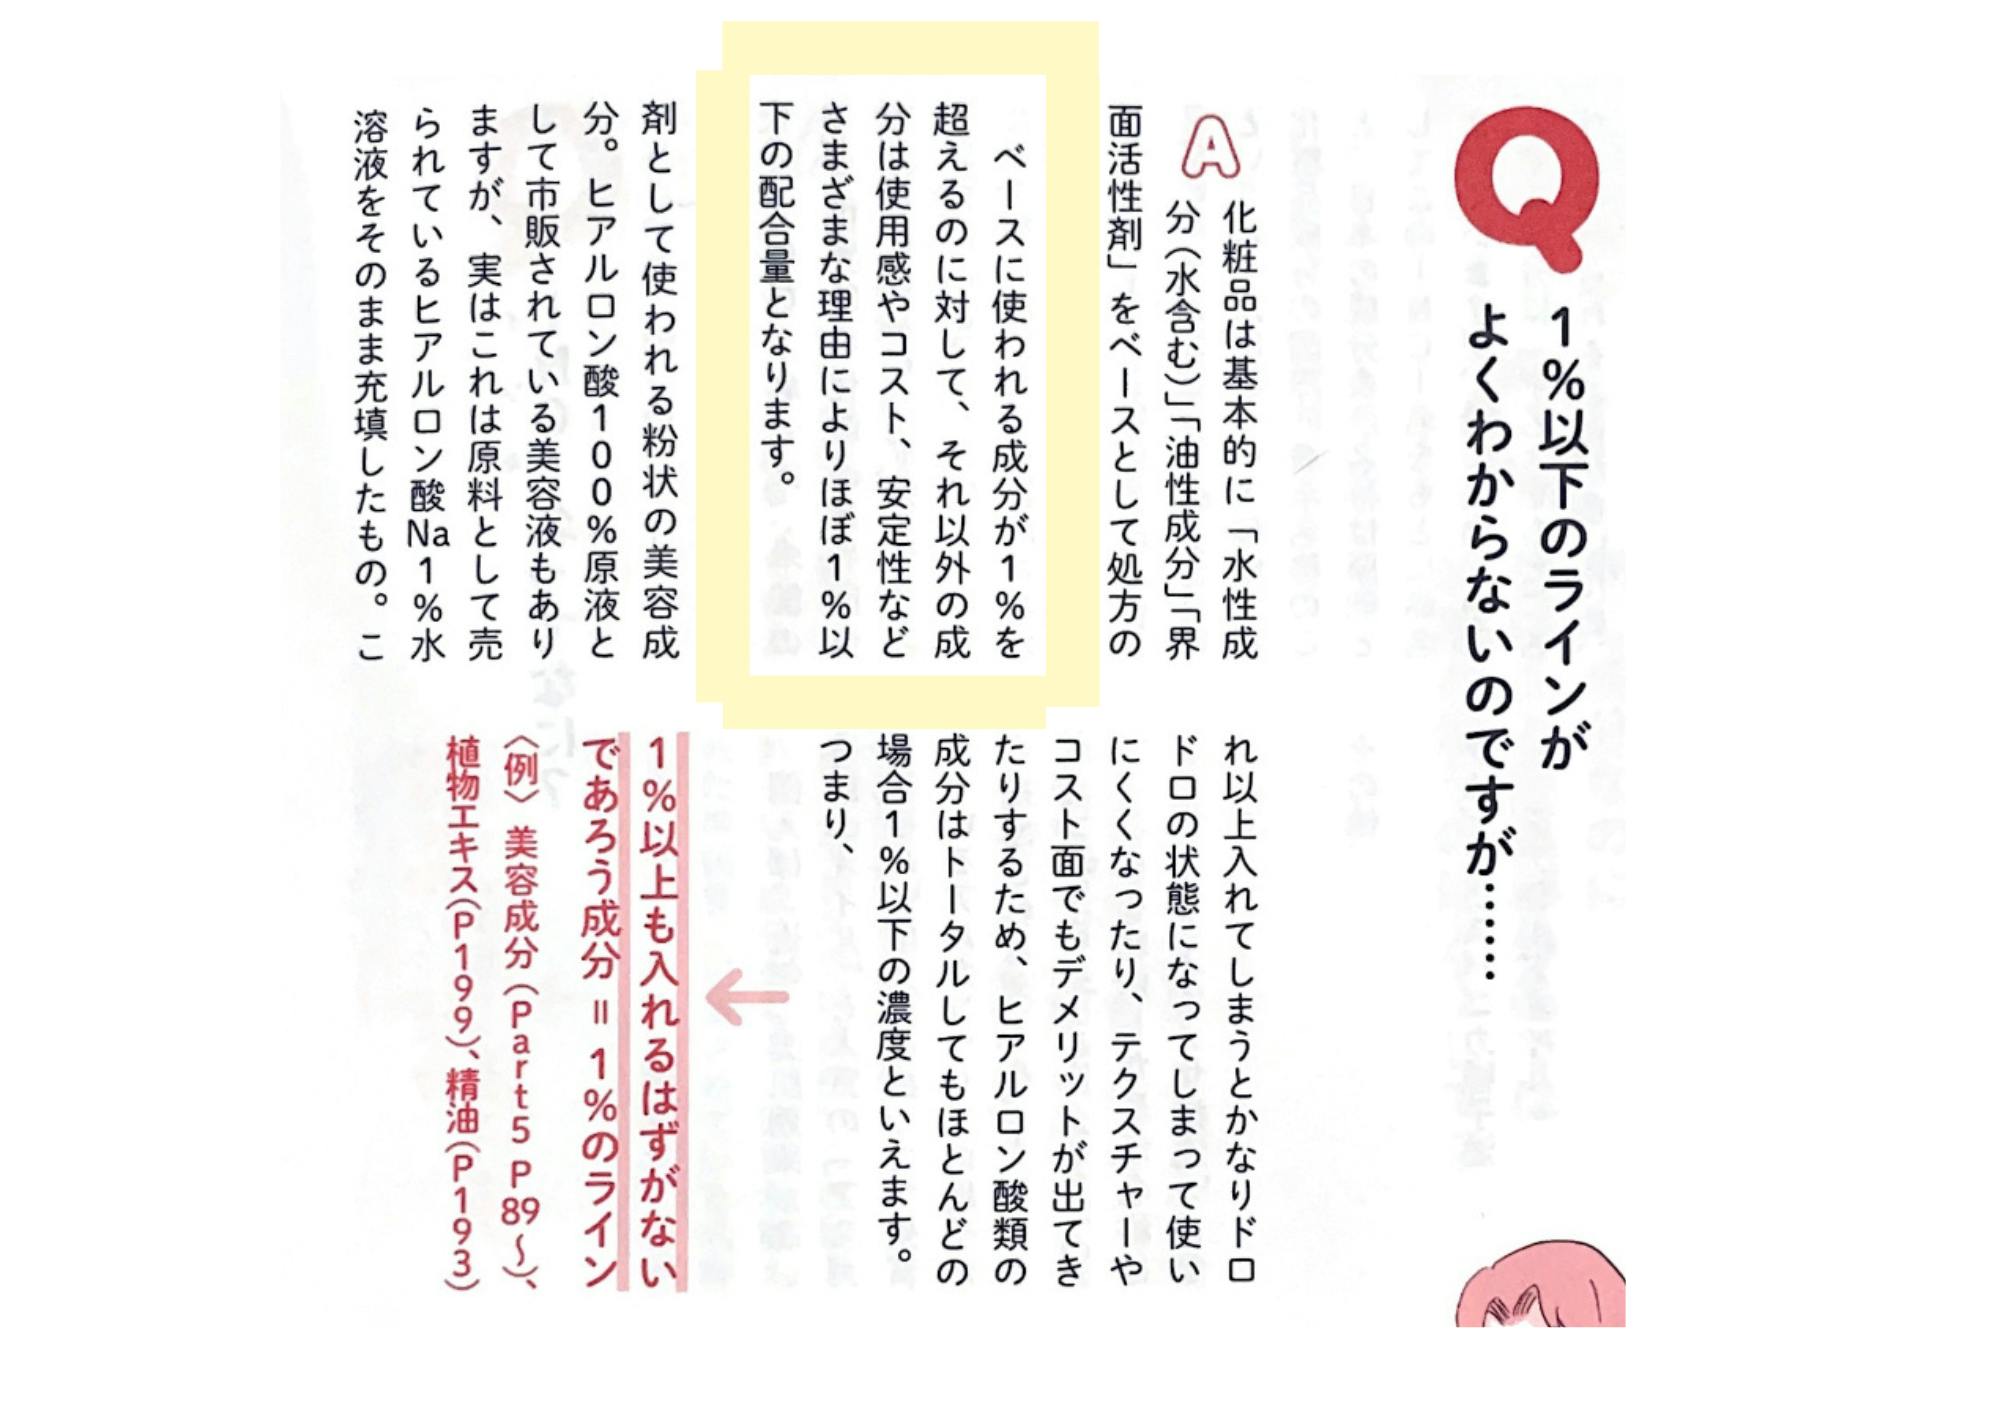 Q
1%以下のラインが
よくわからないのですが……
A
化粧品は基本的に「水性成
分（水含む）」「油性成分」「界
面活性剤」をベースとして処方の
ベースに使われる成分が1%を
超えるのに対して、それ以外の成
分は使用感やコスト、安定性など
さまざまな理由によりほぼ1%以
下の配合量となります。
剤として使われる粉状の美容成
分。ヒアルロン酸100%原液と
して市販されている美容液もあり
ますが、実はこれは原料として売
られているヒアルロン酸Na1%水
溶液をそのまま充填したもの。こ
れ以上入れてしまうとかなりドロ
ドロの状態になってしまって使い
にくくなったり、テクスチャーや
コスト面でもデメリットが出てき
たりするため、ヒアルロン酸類の
成分はトータルしてもほとんどの
場合1%以下の濃度といえます。
つまり、
1%以上も入れるはずがない
であろう成分＝1%のライン
〈例〉美容成分（Part5 P89〜）、
植物エキス（P199）、精油（P193）